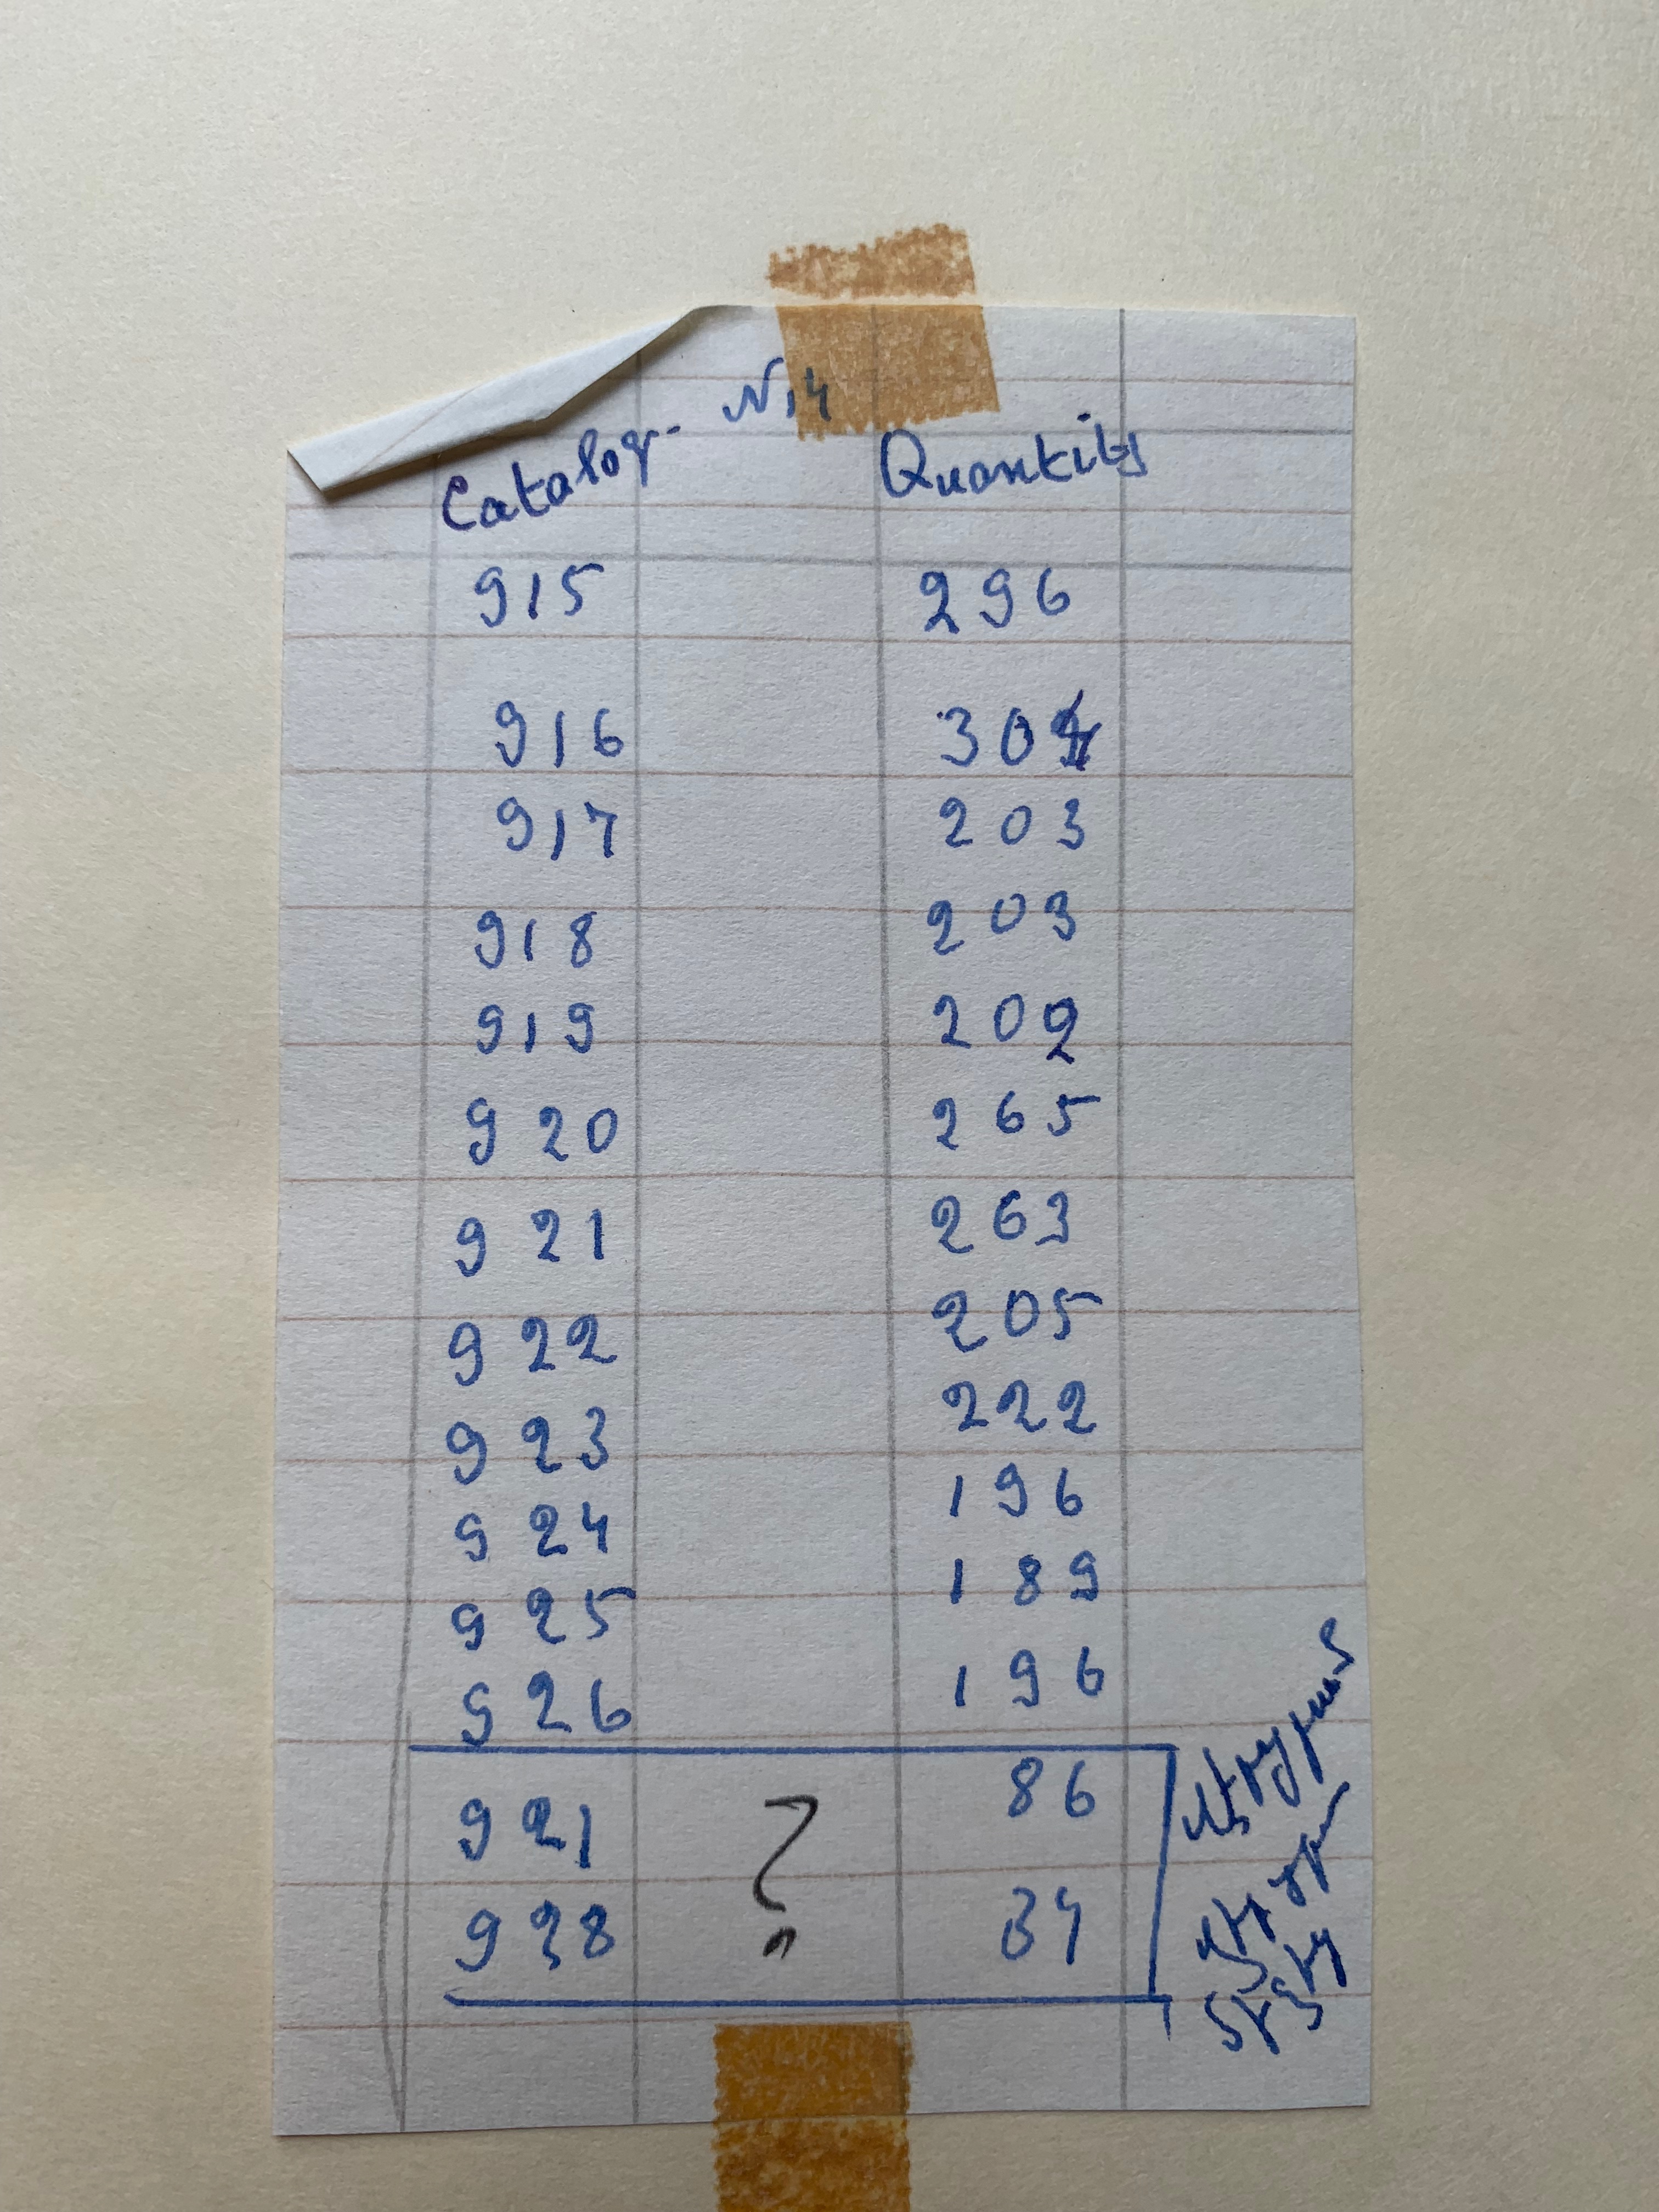 N.4
Catalog. Quantity
915 296
916 304
917 203
918 203
919 202
920 265
921 263
922 205
923 222
924 196
925 189
926 196
921 ? 86
928 34